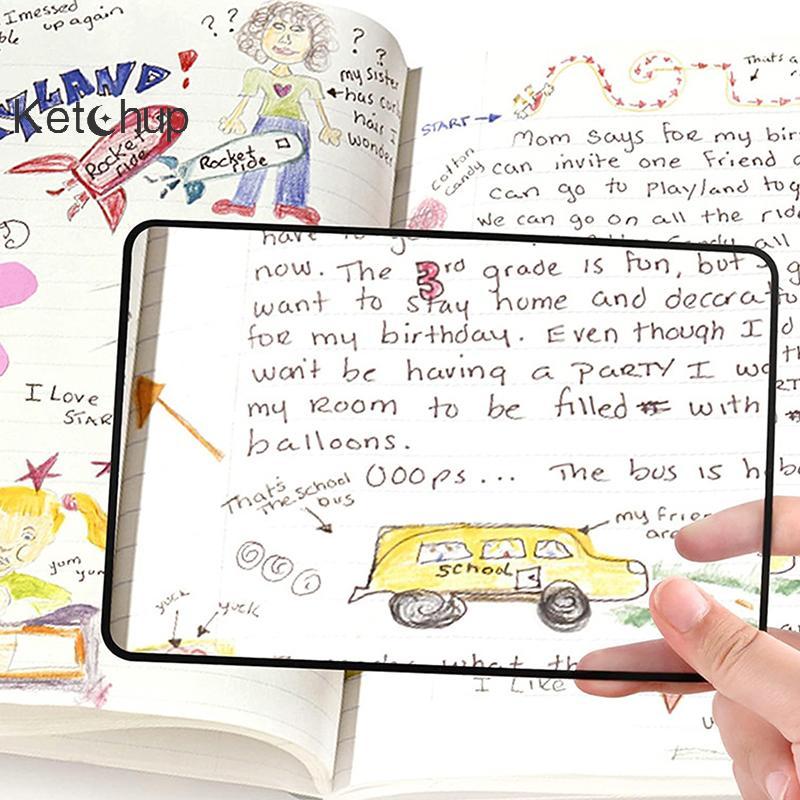 I messed
up again
YLAND!
Ketchup
Rocket
ride
Rocket
ride
? ?
? ?
my sister
has
hair I
wonder
I Love
STAR
yum
yum
That's a
START
cotton
candy
Mom says for my bir
can invite one friend
can go to Playland tog
we can go on all the rid
all
now. The 3rd grade is fun, but
want to stay home and decorat
for my birthday. Even though I
won't be having a PARTY I wo
my ROOM to be filled with
balloons.
OOOps... The bus is h
That's
the school
bus
my frie
are
SCHOOL
yuck
yuck
what th
I Like